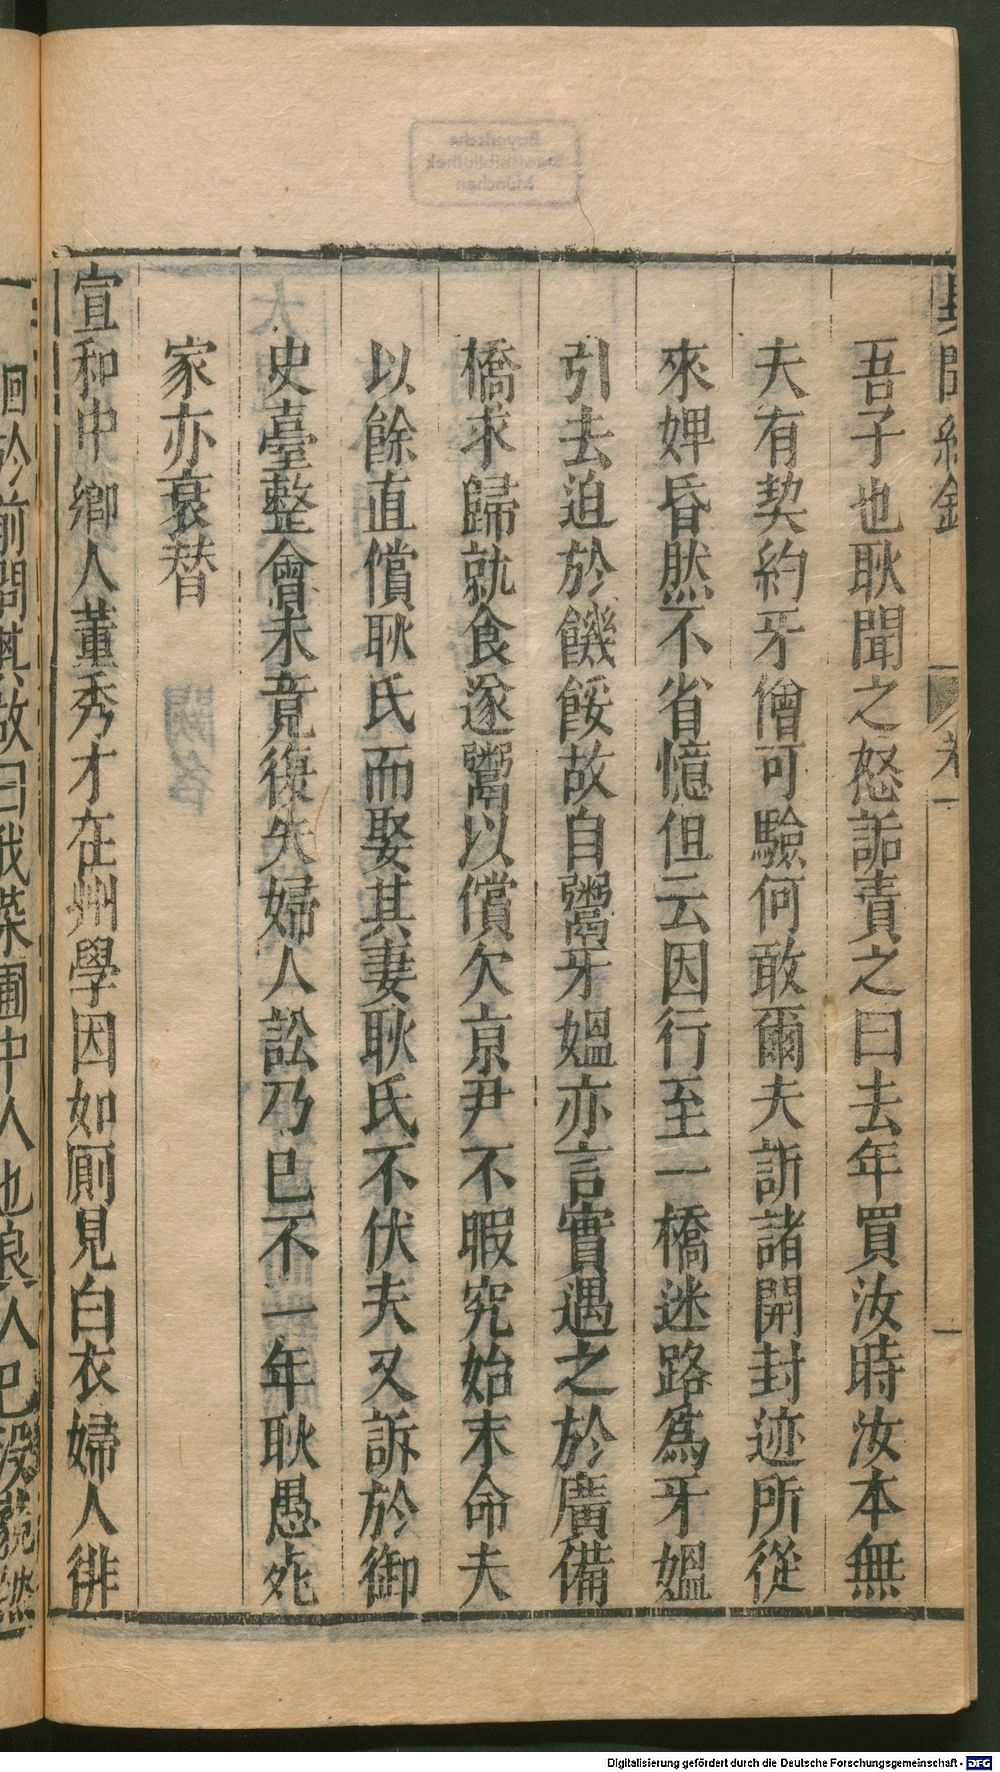 吾子也耿聞之怒詬責之曰去年買汝時汝本無
夫有契約牙儈可驗何敢爾夫訴諸開封迹所從
來婢昏然不省憶但云因行至一橋迷路爲牙媼
引去迫於饑餒故自鬻牙媼亦言實遇之於廣備
橋求歸就食遂鬻以償欠京尹不暇究始末命夫
以餘直償耿氏而娶其妻耿氏不伏夫又訴於御
史臺整會未竟復失婦人訟乃已不一年耿愚死
家亦衰替
宣和中鄉人董秀才在州學因如厠見白衣婦人徘
徊於前問其故曰我菜圃中人也良人已没
Bayerische
Staatsbibliothek
München
Digitalisierung gefördert durch die Deutsche Forschungsgemeinschaft - DFG